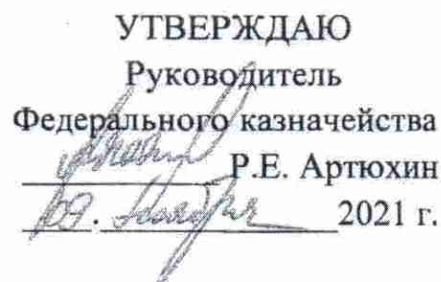 УТВЕРЖДАЮ
Руководитель
Федерального казначейства
Р.Е. Артюхин
2021 г.